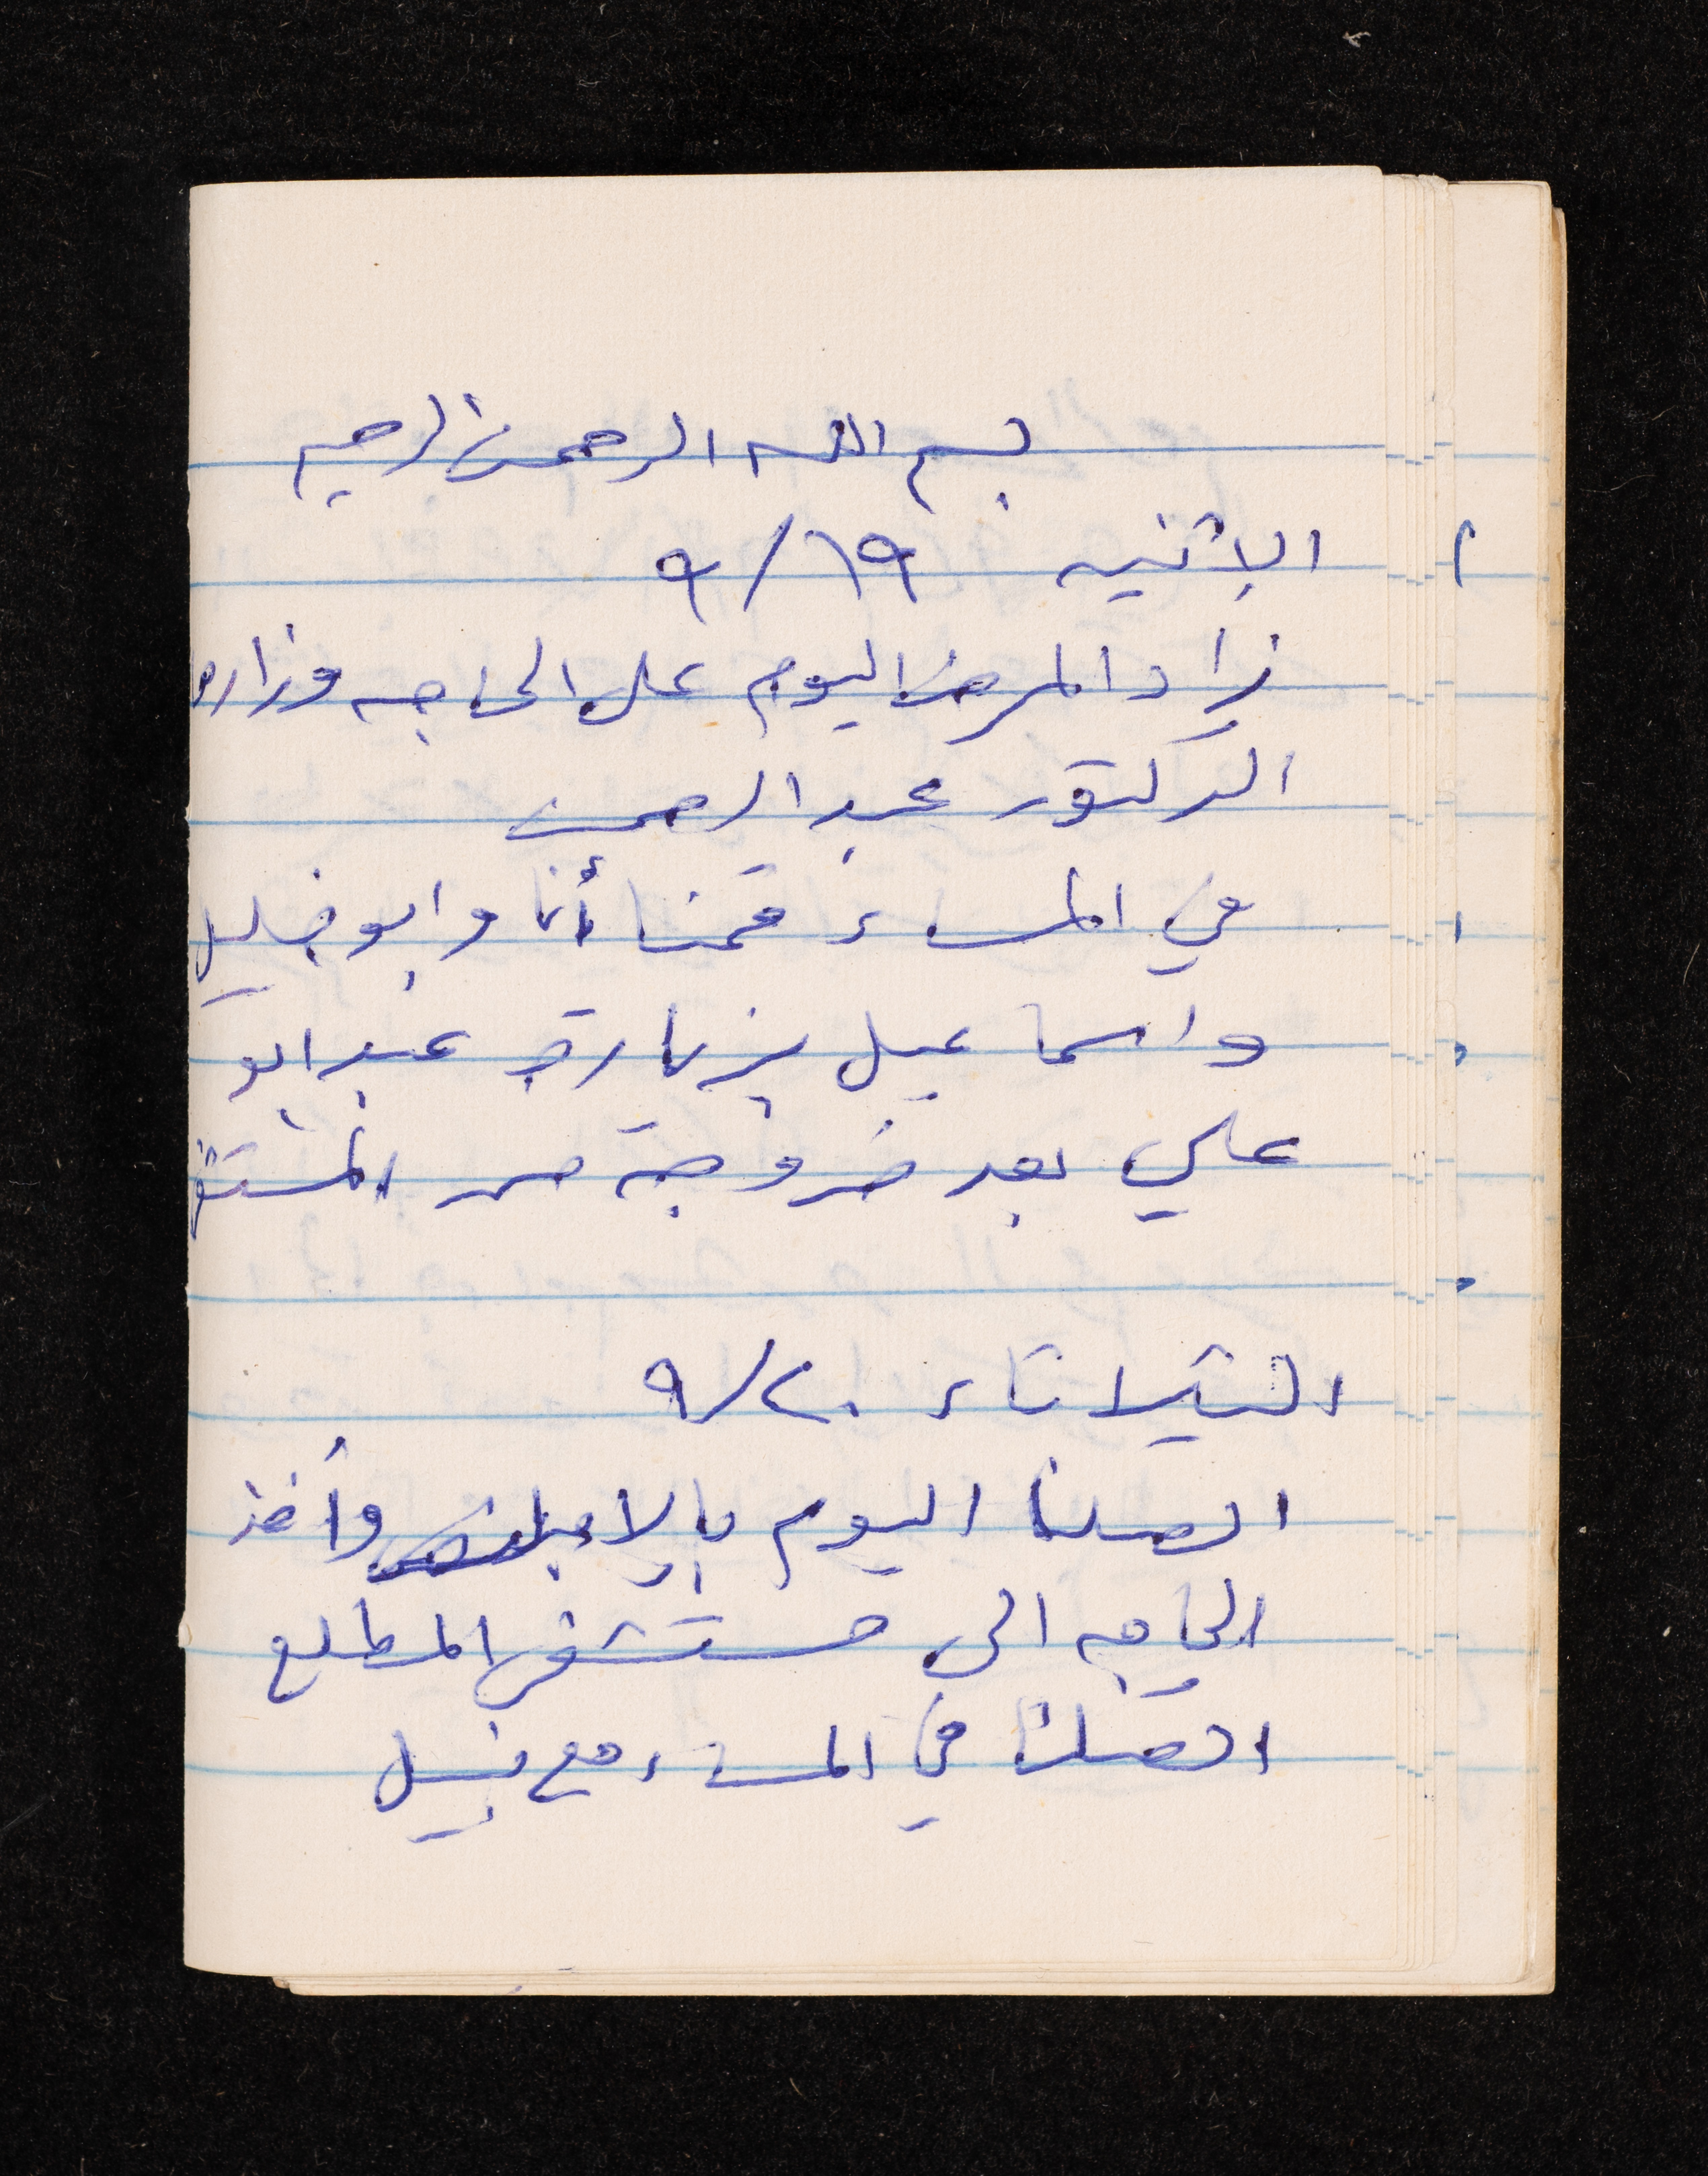 بسم الله الرحمن الرحيم
الاثنين ١٩/٩
زاد المرض اليوم على الحاجه وزاره
الدكتور عبد الرحمن
في المساء قمنا أنا وابو خليل
واسماعيل بزيارة عبد ابو
علي بعد خروجه من المستشفى
الثلاثاء ٢٠/٩
اتصلنا اليوم بالاسعاف وأخذ
الحاجه الى مستشفى المطلع
اتصلت في المساء مع نبيل